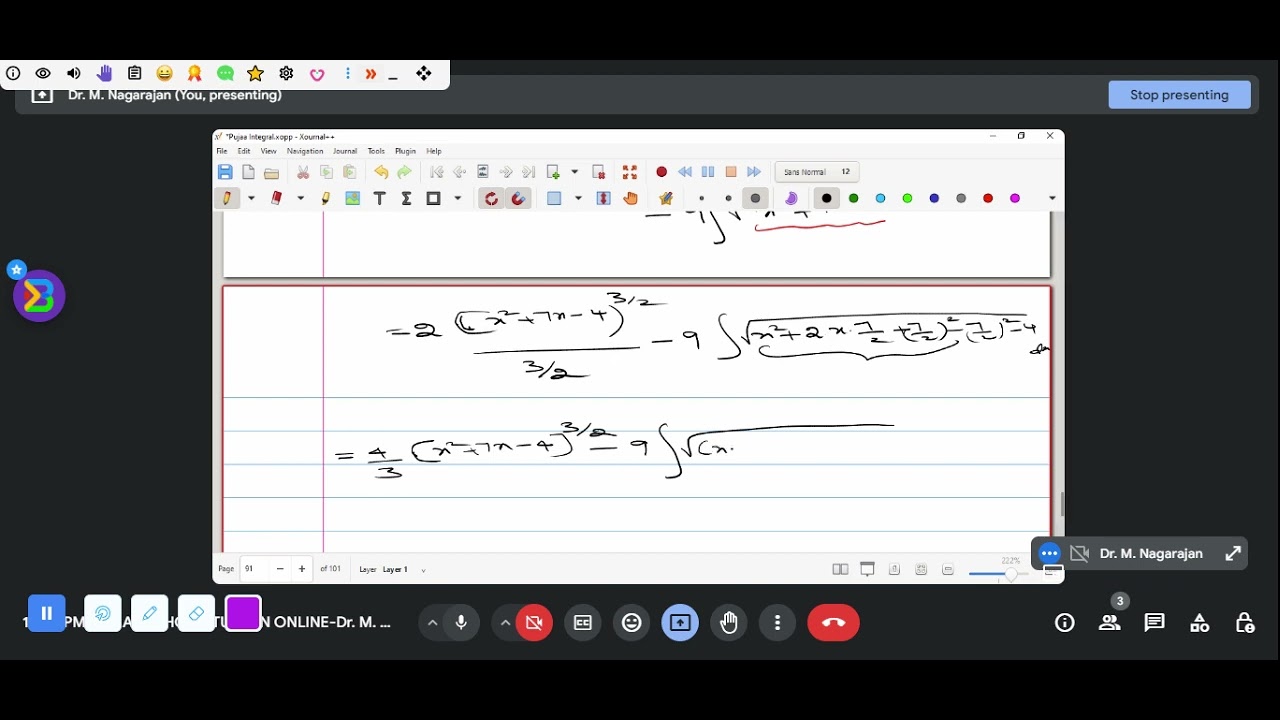 Dr. M. Nagarajan (You, presenting)
Stop presenting
*Pujaa Integral.xopp - Xournal++
File Edit View Navigation Journal Tools Plugin Help
Sans Normal 12
= 2 (x²+7x-4)^3/2 / 3/2 - 9 ∫√x²+2x·7/2+(7/2)²-(7/2)²-4 dx
= 4/3 (x²+7x-4)^3/2 - 9 ∫√(x
Page 91 - + of 101 Layer Layer 1
222%
Dr. M. Nagarajan
3
ONLINE-Dr. M. ...